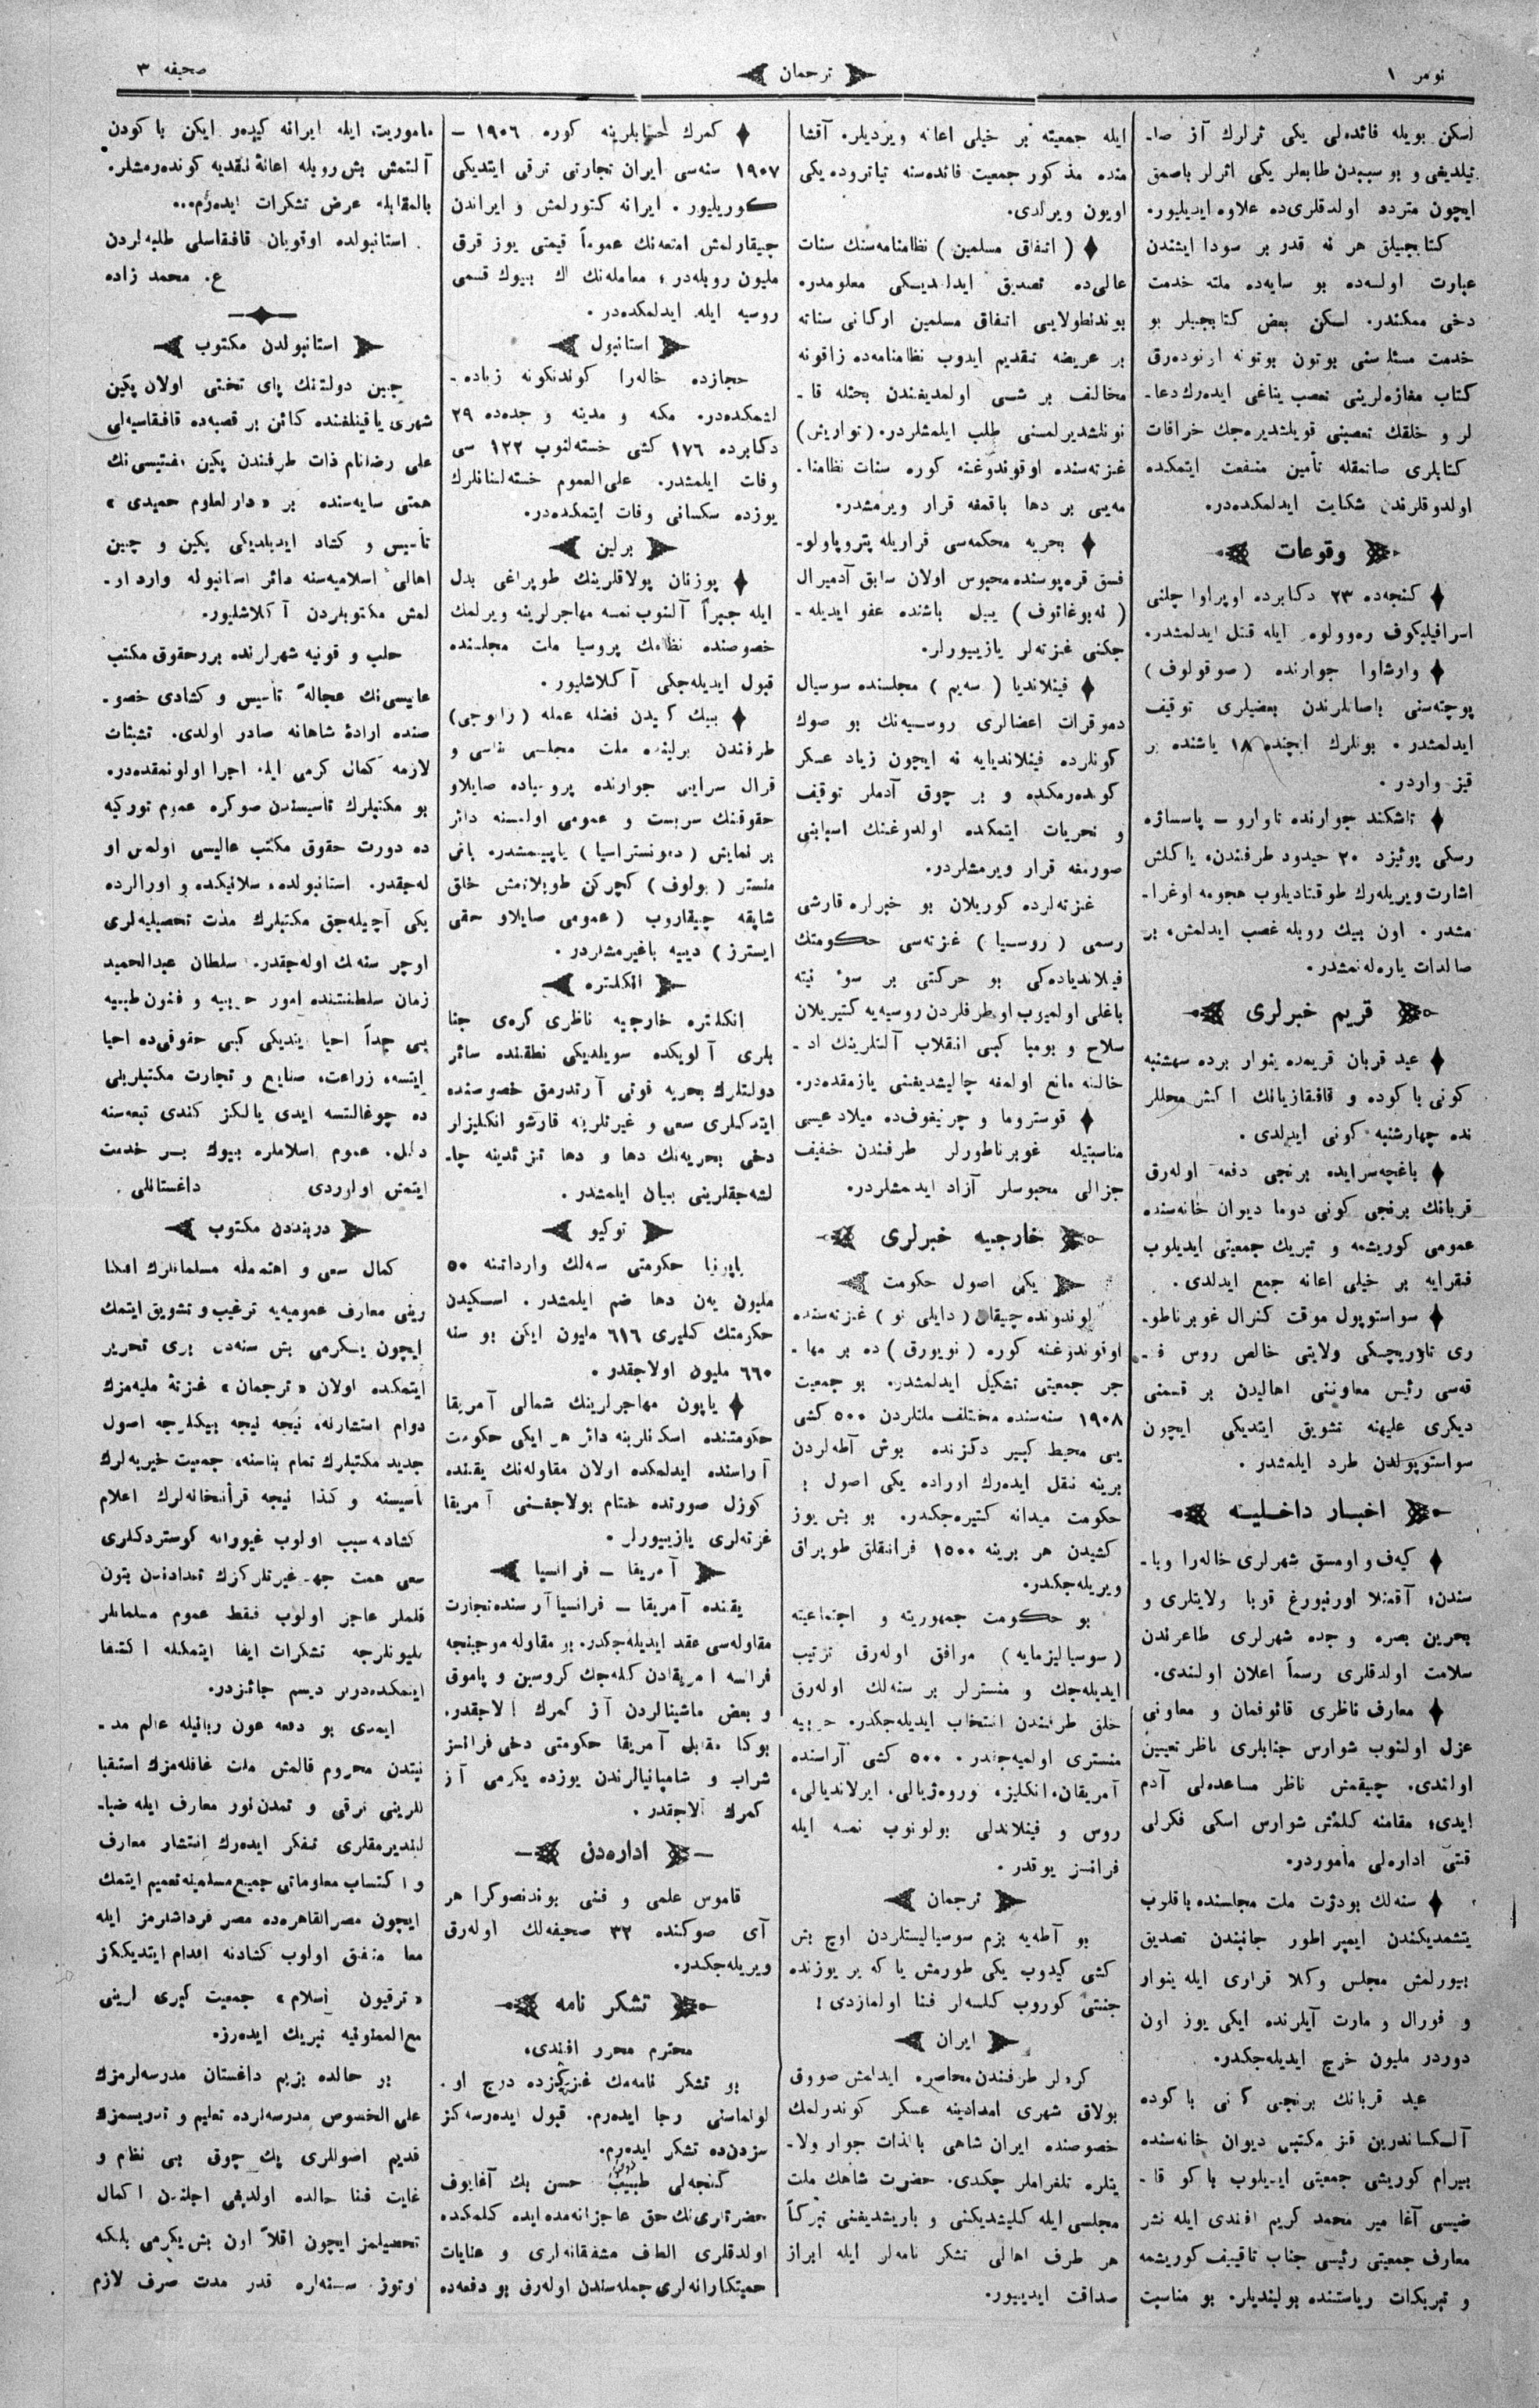 نومر ١
ترجمان
صحیفه ٣
لسکن بویله فائده‌لی یکی اثرلرك آز صا-
تیلدیغی و بو سببدن طابعلر یکی اثرلر باصمق
ایچون متردد اولدقلری‌ده علاوه ایدیلیور.
کتابجیلق هر نه قدر بر سودا ایشندن
عبارت اولسه‌ده بو سایه‌ده ملته خدمت
دخی ممکندر. لسکن بعض کتابجیلر بو
خدمت مسئله سنی بوتون بوتونه اونوده‌رق
کتاب مغازه‌لرینی تعصب یتاغی ایده‌رك دعا-
لر و خلقك تعصبنی قویلشدیره‌جك خرافات
کتابلری صاتمقله تأمین منفعت ایتمکده
اولدوقلرندن شکایت ایدلمکده‌در.
وقوعات
کنجه‌ده ٢٣ دکابرده اوپراوا چلنی
اسرافیلیکوف ره‌وولوه‌ر ایله قتل ایدلمشدر.
وارشاوا جوارنده (صوقولوف)
پوچته‌سنی باصانلرندن بعضیلری توقیف
ایدلمشدر. بونلرك ایچنده ١٨ یاشنده بر
قیز واردر.
تاشکند جوارنده ناوارو — پاسساژه
رسکی پوئیزد ٢٠ حیدود طرفندن، یاکلش
اشارت ویریله‌رك طوقتادیلوب هجومه اوغرا-
مشدر. اون بیك روبله غصب ایدلمش، بر
صالدات یاره‌له‌نمشدر.
قریم خبرلری
عید قربان قریمده ینوار برده سه‌شنبه
کونی باکوده و قافقازیانك اکثر محللر
نده چهارشنبه کونی ایدلدی.
باغچه‌سرایده برنجی دفعه اوله‌رق
قربانك برنجی کونی دوما دیوان خانه‌سنده
عمومی کوریشمه و تبریك جمعیتی ایدیلوب
فقرایه بر خیلی اعانه جمع ایدلدی.
سواستوپول موقت کنرال غوبرناطو-
ری تاوریچسکی ولایتی خالص روس ف-
قه‌سی رئیس معاوننی اهالیدن بر قسمنی
دیکری علیهنه تشویق ایتدیکی ایچون
سواستوپولدن طرد ایلمشدر.
اخبار داخلیه
کیه‌ف و اومسق شهرلری خاله‌را وبا-
سندن؛ آقمتلا اورنبورغ قوبا ولایتلری و
بحرین بصره و جده شهرلری طاعوندن
سلامت اولدقلری رسماً اعلان اولندی.
معارف ناظری قائوفمان و معاونی
عزل اولنوب شوارس جنابلری ناظر تعیین
اولندی. چیقمش ناظر مساعده‌لی آدم
ایدی؛ مقامنه کلمش شوارس اسکی فکرلی
قتی اداره‌لی ماموردر.
سنه‌لك بودژت ملت مجلسنده باقلوب
یتشمدیکندن ایمپراطور جانبندن تصدیق
بیورلمش مجلس وکلا قراری ایله ینوار
و فورال و مارت آیلرنده ایکی یوز اون
دوردر ملیون خرج ایدیله‌جکدر.
عید قربانك برنجی کونی باکوده
آلـکساندرین قز مکتبی دیوان خانه‌سنده
بیرام کوریشی جمعیتی ایدیلوب باکو قا-
ضیسی آغا میر محمد کریم افندی ایله نشر
معارف جمعیتی رئیسی جناب تاقییف کوریشمه
و تبریکات ریاستنده بولیندیلر. بو مناسبت
ایله جمعیته بر خیلی اعانه ویردیلر. آقشا
منده مذکور جمعیت فائده‌سنه تیاتروده یکی
اویون ویرلدی.
(اتفاق مسلمین) نظامنامه‌سنك سنات
عالی‌ده تصدیق ایدلمدیـکی معلومدر.
بوندنطولایی اتفاق مسلمین ارکانی سناته
بر عریضه تقدیم ایدوب نظامنامه‌ده زاقونه
مخالف بر شی اولمدیغندن بحثله قا-
نونلشدیرلمسنی طلب ایلمشلردر. (تواریش)
غزته‌سنده اوقوندوغنه کوره سنات نظامنا-
مه‌یی بر دها باقمغه قرار ویرمشدر.
بحریه محکمه‌سی قراریله پتروپاولو-
فسق قره‌پوسنده محبوس اولان سابق آدمیرال
(نه‌بوغاتوف) ییل باشنده عفو ایدیله-
جکنی غزته‌لر یازیییورلر.
فینلاندیا (سه‌یم) مجلسنده سوسیال
دموقرات اعضالری روسیه‌نك بو صوك
کونلرده فینلاندیایه نه ایچون زیاد عسکر
کونده‌رمکده و بر چوق آدملر توقیف
و تحریات ایتمکده اولدوغنك اسبابنی
صورمغه قرار ویرمشلردر.
غزته‌لرده کوریلان بو خبرلره قارشی
رسمی (روسیا) غزته‌سی حکومتك
فیلاندیاده‌کی بو حرکتی بر سوء نیته
باغلی اولمیوب او طرفلردن روسیه‌یه کتیریلان
سلاح و بومبا کبی انقلاب آلتلرینك اد-
خالنه مانع اولمغه چالیشدیغنی یازمقده‌در.
قوستروما و چرنیغوف‌ده میلاد عیسی
مناسبتیله غوبرناطورلر طرفندن خفیف
جزالی محبوسلر آزاد ایدمشلردر.
خارجیه خبرلری
یکی اصول حکومت
لوندونده چیقان (دایلی نو) غزته‌سنده
اوقوندوغنه کوره (نویورق) ده بر مها-
جر جمعیتی تشکیل ایدلمشدر. بو جمعیت
١٩٠٨ سنه‌سنده مختلف ملتلردن ٥٠٠ کشی
یی محیط کبیر دکزنده بوش آطه‌لردن
برینه نقل ایده‌رك اوراده یکی اصول
حکومت میدانه کتیره‌جکدر. بو بش یوز
کشیدن هر برینه ١٥٠٠ فرانقلق طوپراق
ویریله‌جکدر.
بو حکومت جمهوریته و اجتماعیته
(سوسیالیزمایه) موافق اوله‌رق ترتیب
ایدیله‌جك و منسترلر بر سنه‌لك اوله‌رق
خلق طرفندن انتخاب ایدیله‌جکدر. حربیه
منستری اولمیه‌جقدر. ٥٠٠ کشی آراسنده
آمریقان، انکلیز، نوروه‌ژیالی، ایرلاندیالی،
روس و فینلاندلی بولونوب نمسه ایله
فرانسز یوقدر.
ترجمان
بو آطه‌یه بزم سوسیالیستلردن اوچ بش
کشی کیدوب یکی طورمش یا که یر یوزنده
جنتی کوروب کلسه‌لر فنا اولمازدی!
ایران
کردلر طرفندن محاصره ایدلمش صووق
بولاق شهری امدادینه عسکر کوندرلمك
خصوصنده ایران شاهی بالذات جوار ولا-
یتلره تلغرافلر چکدی. حضرت شاهك ملت
مجلسی ایله کلیشدیکنی و باریشدیغنی تبرکاً
هر طرف اهالی تشکر نامه‌لر ایله ابراز
صداقت ایدیییور.
کمرك حسابلرینه کوره ١٩٠٦ —
١٩٠٧ سنه‌سی ایران تجارتی ترقی ایتدیکی
کوریلیور. ایرانه کتورلمش و ایراندن
چیقارلمش امتعه‌نك عموماً قیمتی یوز قرق
ملیون روبله‌در؛ معامله‌نك اك بییوك قسمی
روسیه ایله ایدلمکده‌در.
استانبول
حجازده خاله‌را کوندنکونه زیاده-
لشمکده‌در. مکه و مدینه و جده‌ده ٢٩
دکابرده ١٧٦ کشی خسته‌لنوب ١٢٢ سی
وفات ایلمشدر. علی‌العموم خسته‌لنانلرك
یوزده سکسانی وفات ایتمکده‌در.
برلین
پوزنان پولاقلرینك طوپراغی بدل
ایله جبراً آلنوب نمسه مهاجرلرینه ویرلمك
خصوصنده نظامك پروسیا ملت مجلسنده
قبول ایدیله‌جکی آکلاشلیور.
بیك کیدن فضله عمله (رابوچی)
طرفندن برلینده ملت مجلسی بناسی و
قرال سرایی جوارنده پروسیاده صایلاو
حقوقنك سربست و عمومی اولمسنه دائر
بر نمایش (دمونستراسیا) یاپیلمشدر. باش
منستر (بولوف) کچرکن طوپلانمش خلق
شاپقه چیقاروب (عمومی صایلاو حقی
ایسترز) دییه باغیرمشلردر.
انکلتره
انکلتره خارجیه ناظری کره‌ی جنا
بلری آلویکده سویلدیکی نطقنده سائر
دولتلرك بحریه قوتی آرتدرمق خصوصنده
ایتدکلری سعی و غیرتلرینه قارشو انکلیزلر
دخی بحریه‌نك دها و دها تزئیدینه چا-
لشه‌جقلرینی بیان ایلمشدر.
توکیو
یاپونیا حکومتی سه‌لك وارداتنه ٥٠
ملیون یه‌ن دها ضم ایلمشدر. اسـکیدن
حکومتك کلیری ٦١٦ ملیون ایکن بو سنه
٦٦٠ ملیون اولاجقدر.
یاپون مهاجرلرینك شمالی آمریقا
حکومتنده اسکانلرینه دائر هر ایکی حکومت
آراسنده ایدلمکده اولان مقاوله‌نك یقنده
کوزل صورتده ختام بولاجغنی آمریقا
غزته‌لری یازیییورلر.
آمریقا — فرانسیا
یقنده آمریقا — فرانسیا آرسنده تجارت
مقاوله‌سی عقد ایدیله‌جکدر. بر مقاوله موجبنجه
فرانسه امریقادن کله‌جك کروسین و پاموق
و بعض ماشینالردن آز کمرك الاجقدر.
بوکا مقابل آمریقا حکومتی دخی فرانسز
شراب و شامپانیالرندن یوزده یکرمی آز
کمرك آلاجقدر.
اداره‌دن
قاموس علمی و فنی بوندنصوکرا هر
آی صوکنده ٣٢ صحیفه‌لك اوله‌رق
ویریله‌جکدر.
تشکر نامه
محترم محرر افندی،
بو تشکر نامه‌مك غزتکزده درج او-
لونماسنی رجا ایده‌رم. قبول ایده‌رسه‌کز
سزدن‌ده تشکر ایده‌رم.
گنجه‌لی طبیب دوقتور حسن بك آغایوف
حضرتلری‌نك حق عاجزانه‌مده ایده کلمکده
اولدقلری الطاف مشفقانه‌لری و عنایات
حمیتکارانه‌لری جمله‌سندن اوله‌رق بو دفعه‌ده
ماموریت ایله ایرانه کیدر ایکن باکودن
آلتمش بش روبله اعانهٔ نقدیه کونده‌رمشلر.
بالمقابله عرض تشکرات ایده‌رم...
استانبولده اوقویان قافقاسلی طلبه‌لردن
ع. محمد زاده
استانبولدن مکتوب
چین دولتنك پای تختی اولان پکین
شهری یاقینلغنده کائن بر قصبه‌ده قافقاسیه‌لی
علی رضانام ذات طرفندن پکین مفتیسی‌نك
همتی سایه‌سنده بر «دارلعلوم حمیدی»
تأسیس و کشاد ایدیلدیکی پکین و چین
اهالیٔ اسلامیه‌سنه دائر استانبوله وارد او-
لمش مکتوبلردن آکلاشلیور.
حلب و قونیه شهرلرنده بررحقوق مکتب
عالیسی‌نك عجالةً تأسیس و کشادی خصو-
صنده ارادهٔ شاهانه صادر اولدی. تشبثات
لازمه کمال کرمی ایله اجرا اولونمقده‌در.
بو مکتبلرك تأسیسندن صوکره عموم تورکیه
ده دورت حقوق مکتب عالیسی اولمش او
له‌جقدر. استانبولده، سلانیکده و اورالرده
یکی آچیله‌جق مکتبلرك مدت تحصیلیه‌لری
اوچر سنه‌لك اوله‌جقدر. سلطان عبدالحمید
زمان سلطنتنده امور حربیه و فنون طبیه
یی جداً احیا یتدیکی کبی حقوقی‌ده احیا
ایتسه، زراعت، صنایع و تجارت مکتبلرینی
ده چوغالتسه ایدی یالکز کندی تبعه‌سنه
دکل، عموم اسلاملره بییوك بـر خدمت
ایتمش اولوردی داغستانلی.
دربنددن مکتوب
کمال سعی و اهتمامله مسلمانلرك افکا
رینی معارف عمومیه‌یه ترغیب و تشویق ایتمك
ایچون یـکرمی بش سنه‌دن بری تحریر
ایتمکده اولان «ترجمان» غزتهٔ ملیه‌مزك
دوام استشارله، نیجه نیجه بیکلرجه اصول
جدید مکتبلرك تمام بناسنه، جمعیت خیریه‌لرك
تأسیسنه وکذا نیجه قرأتخانه‌لرك اعلام
کشادنه سبب اولوب غیورانه کوستردکلری
سعی همت جهد غیرتلرکزك تعدادندن بتون
قلملر عاجز اولوب فقط عموم مسلمانلر
ملیونلرجه تشکرات ایفا ایتمکله اکتفا
ایتمکده‌درلر دیسم جائزدر.
ایمدی بو دفعه عون ربانیله عالم مد-
نیتدن محروم قالمش ملت غافله‌مزك استقبا
للرینی ترقی و تمدن نور معارف ایله ضیا-
لندیرمقلری تفکر ایده‌رك انتشار معارف
و اکتساب معلوماتی جمیع مسلمینه تعمیم ایتمك
ایچون مصرالقاهره‌ده مصر قرداشلرمز ایله
معا متفق اولوب کشادنه اقدام ایتدیککز
«ترقیون اسلام» جمعیت کبری لرینی
مع‌الممنونیه تبریك ایده‌رز.
بر حالده بزیم داغستان مدرسه‌لرمزك
علی‌الخصوص مدرسه‌لرده تعلیم و تدریسمزك
قدیم اصوللری پك چوق بی نظام و
غایت فنا حالده اولدیغی اجلندن اکمال
تحصیلمز ایچون اقلاً اون بش یکرمی بلکه
اوتوز سنه‌لره قدر مدت صرف لازم